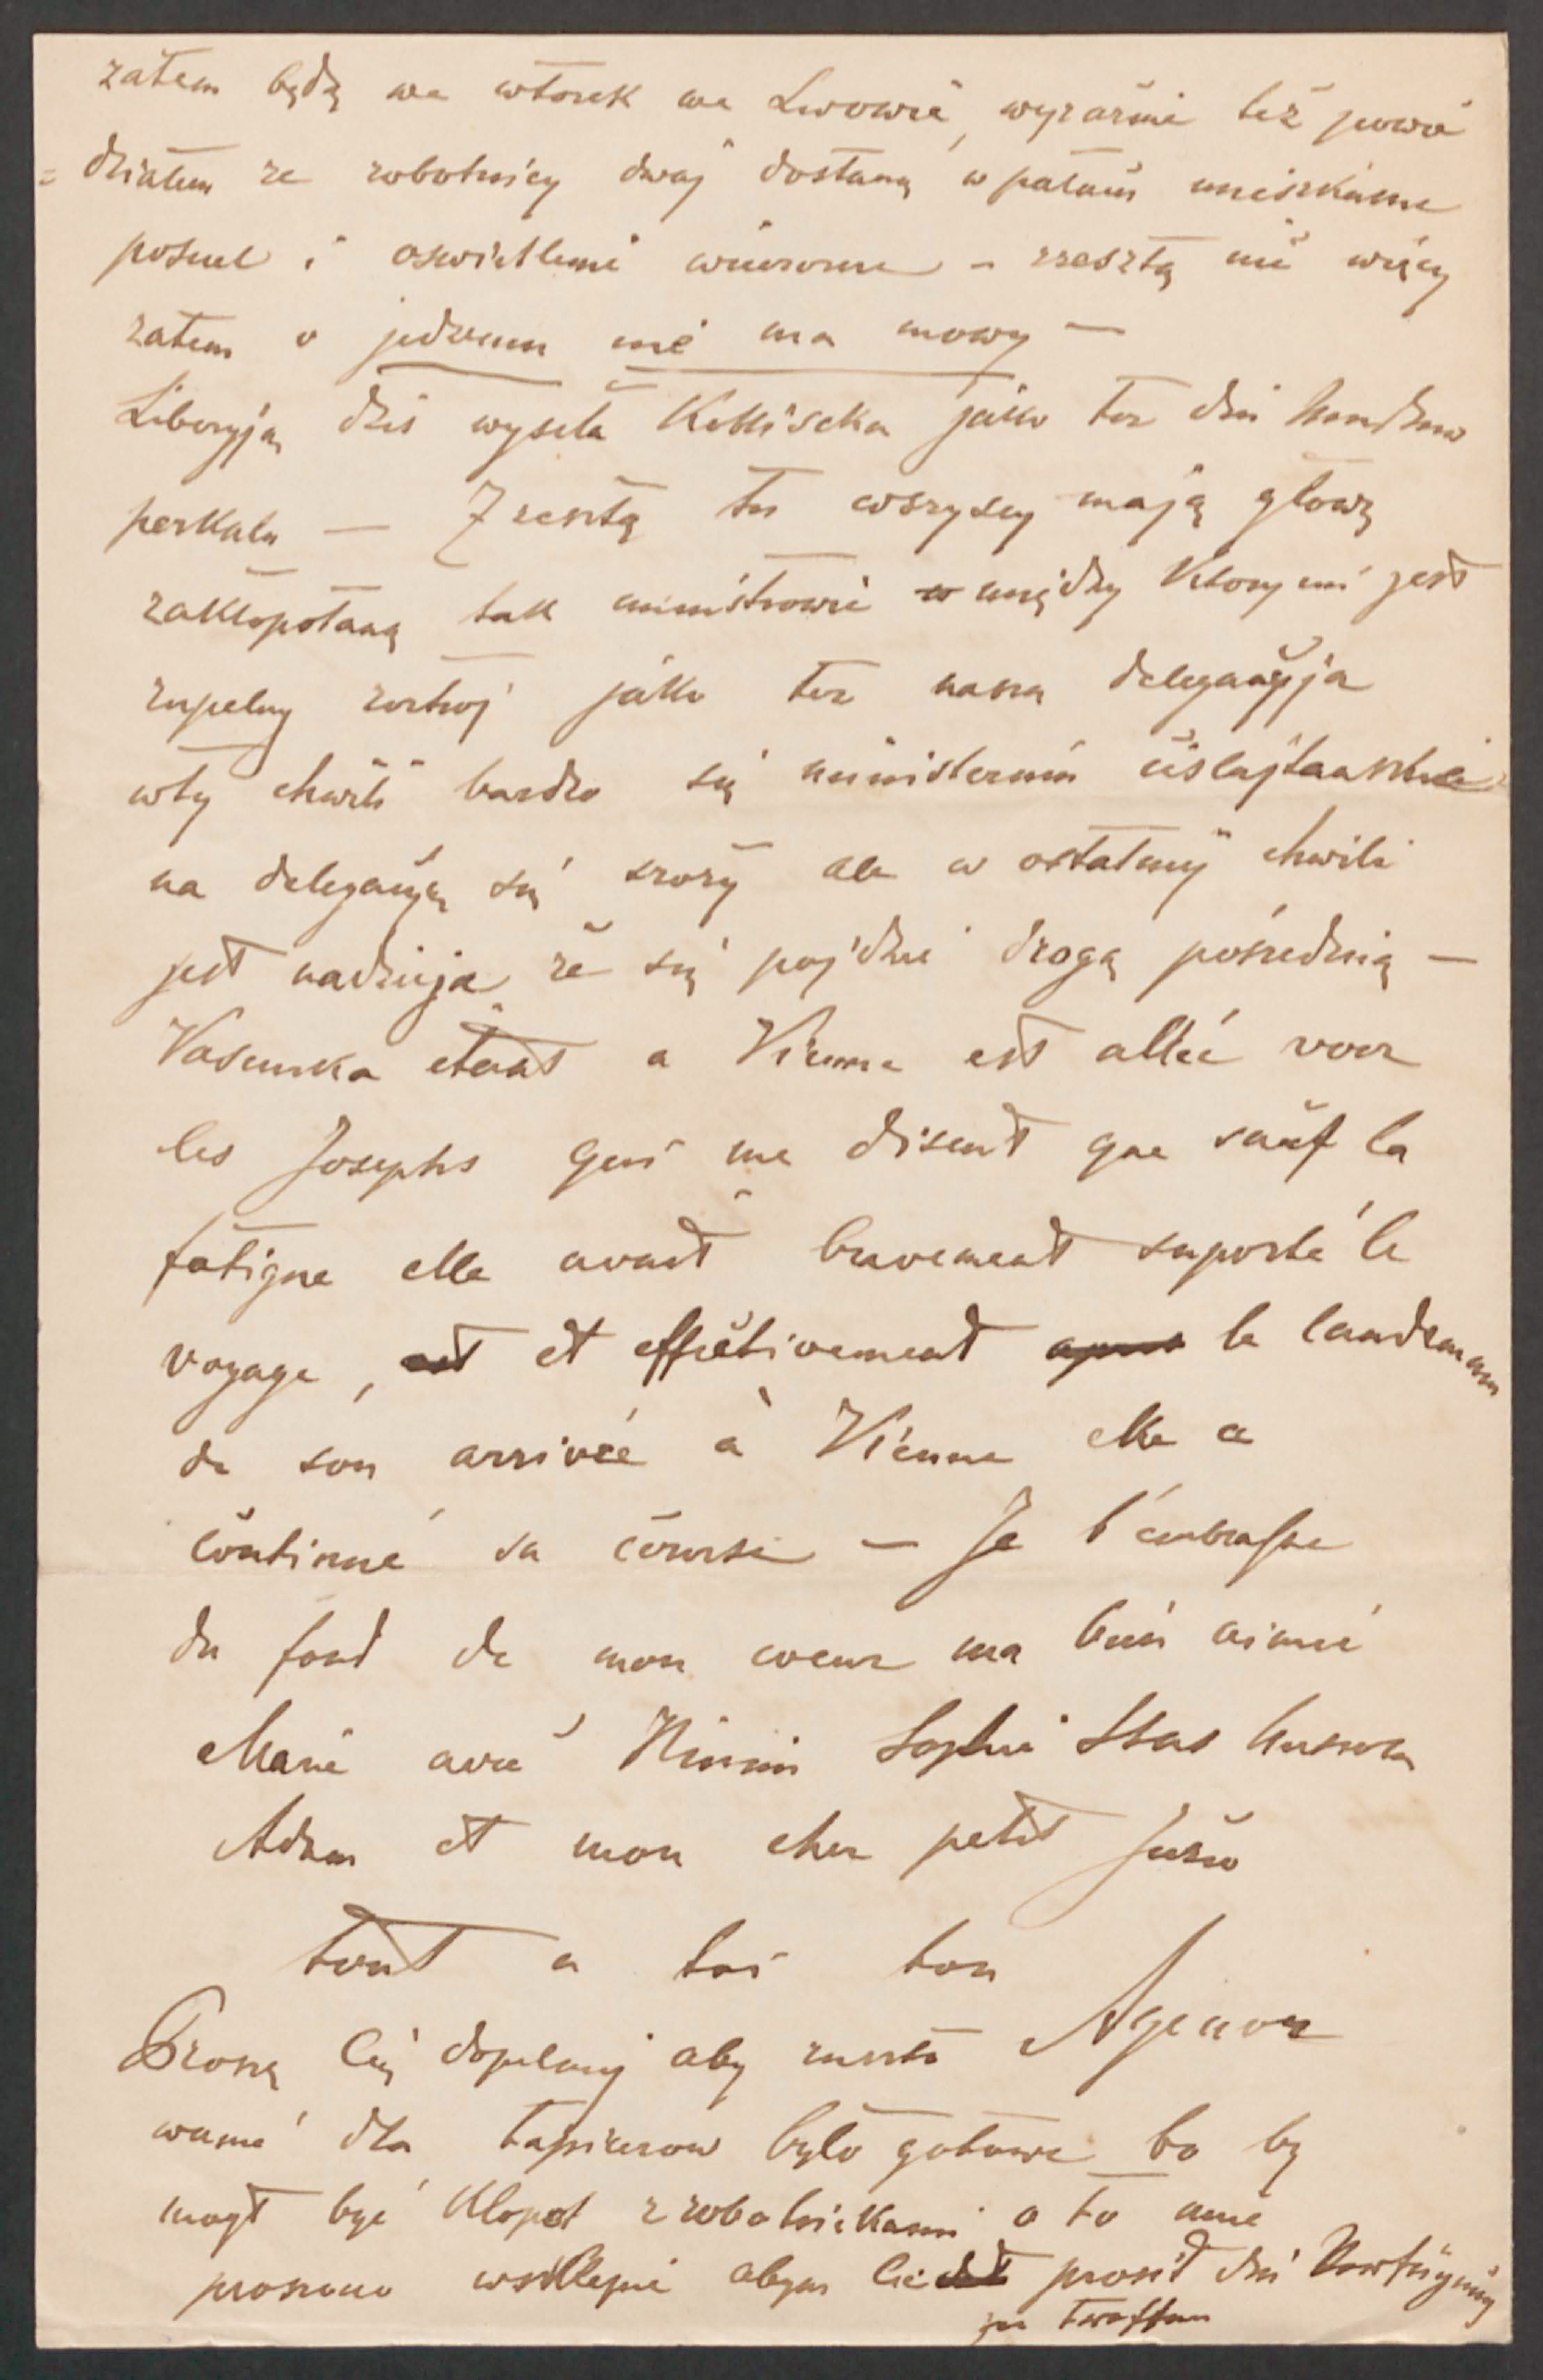 zatem będę we wtorek we Lwowie, wyraźnie też powie
= działem ze robotnicy dwaj dostaną w pałacu mieszkanie
posciel i oswietlenie wieczorne – zresztą nic więcej
zatem o jedzeniu nié ma mowy —
Liberyją dziś wysela jako tez dni
perkalu — Zresztą tu wszyscy mają głowę
zakłopotaną tak ministrowie między ktorymi jest
zupelny rostroj jako tez nasza delegacyja
w tej chwili bardzo się ministerium cislajtanskie
na delegacyę się srozy ale w ostatniej chwili
jest nadzieja ze się pojdzie drogą pośrednią —
etant a Vienne est allée voir
les Josephs qui me disent que sauf la
fatigue elle avait bravement suporté le
voyage, et effectivement le landemain
de son arrivée à Vienne elle a
continué sa course — Je t'embrasse
du fond de mon coeur ma bien aimée
Marie avec Mimi Sophie Stas
Adam et mon cher petit Juzio
tout a toi ton
Agenor
Proszę Cię dopilnuj aby ruszto
wanie dla tapicerow było gotowe bo by
mogł być klopot z robotnikami o to mnie
proszono wsklepie abym Cie prosił die Verfügung
zu treffen